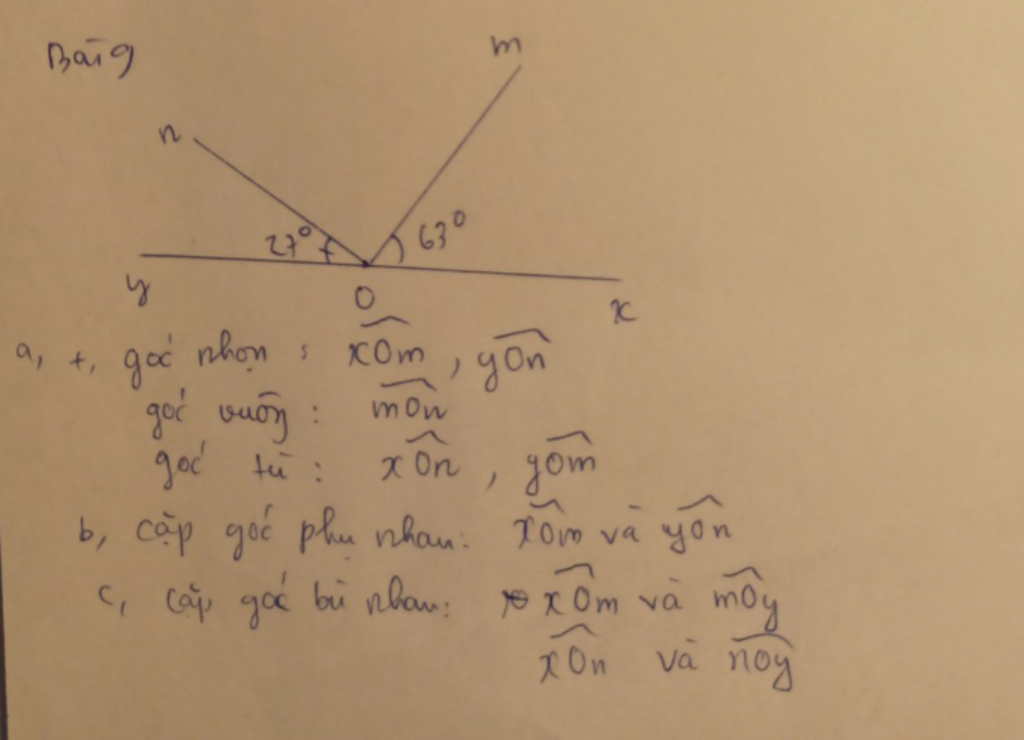 Bài 9
m
n
27° 63°
y O x
a, +, góc nhọn : xOm , yOn
góc vuông : mOn
góc tù : xOn , yOm
b, cặp góc phụ nhau: xOm và yOn
c, cặp góc bù nhau: xOm và mOy
xOn và nOy